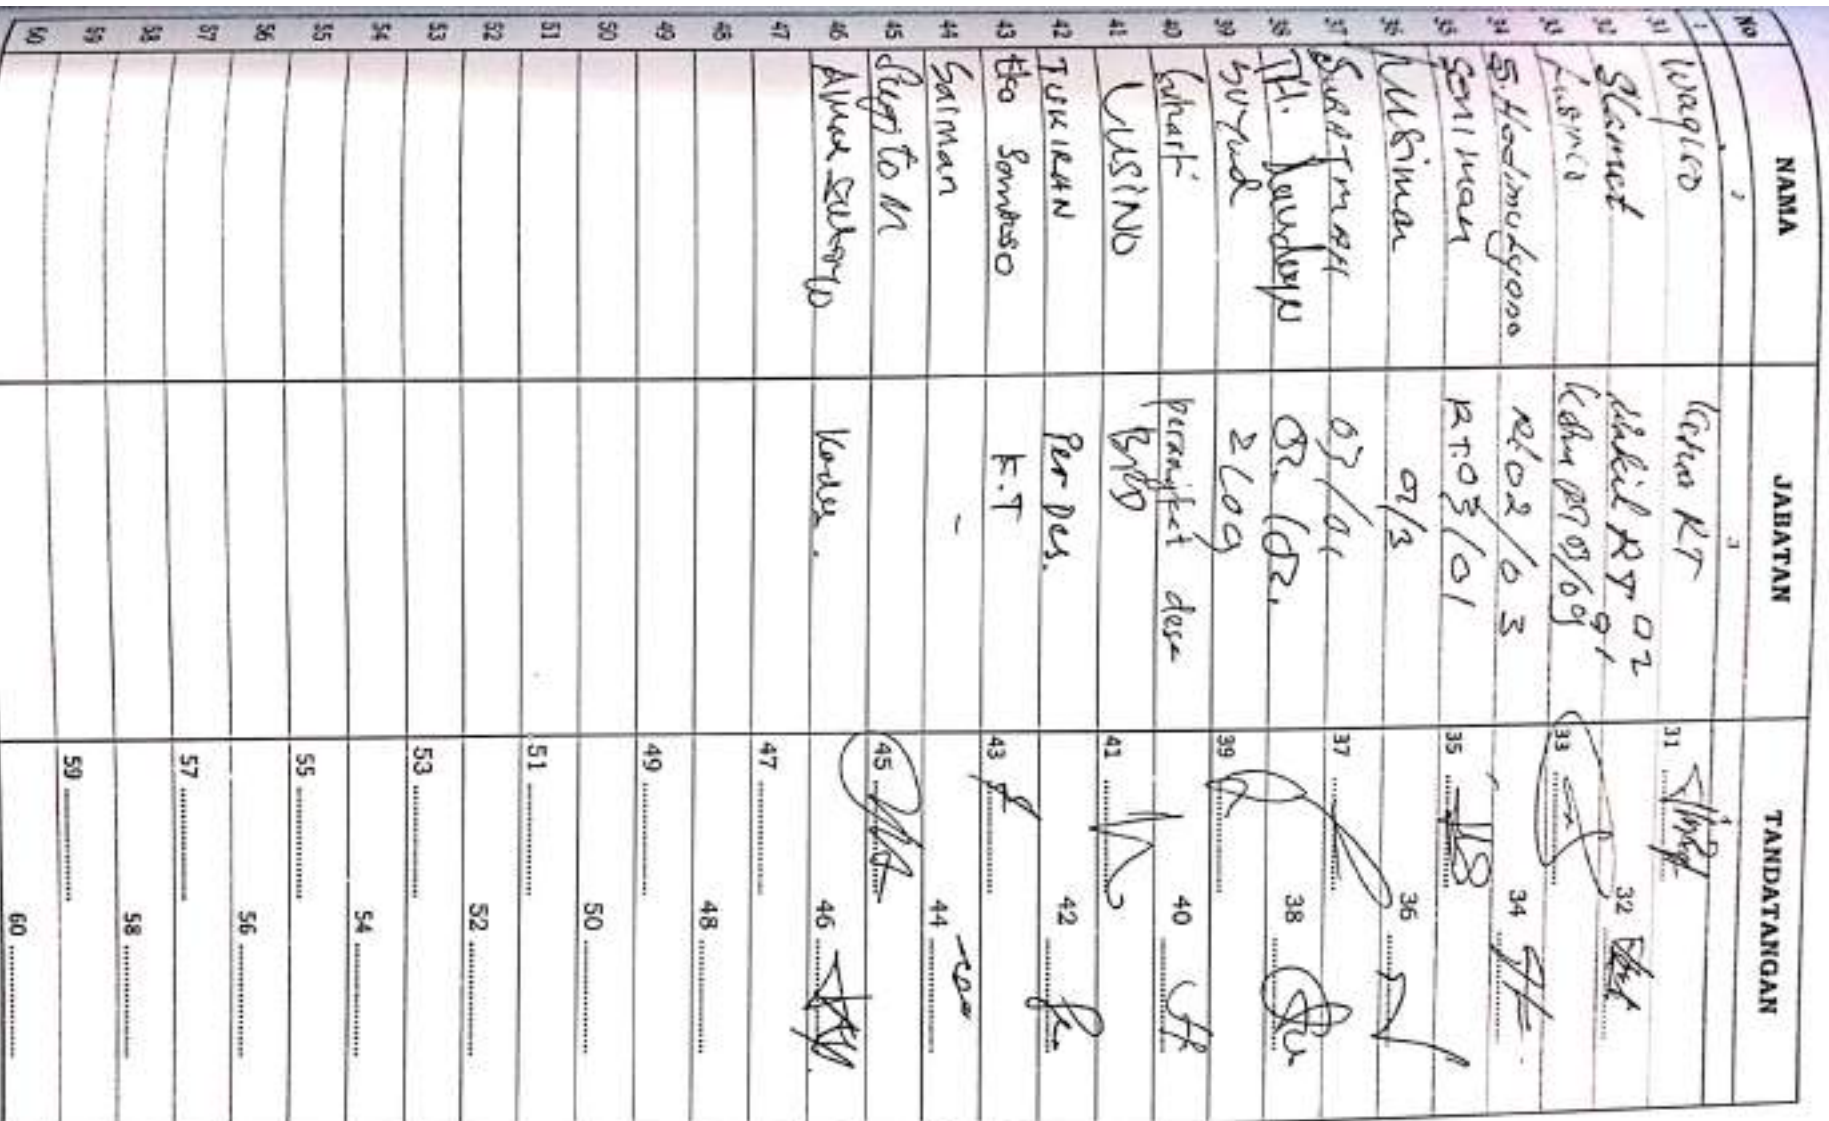 No NAMA JABATAN TANDATANGAN
1 2 3 4
31 Wagiso Ketua RT 31
32 Slamet Wakil RT 02 32
33 33
34 S. Hadimulyono Rt 02/03 34
35 Seniman RT.03/01 35
36 Musiman 9/3 36
37 SURATMAH 03/01 37
38 TH. 02/02. 38
39 Suryad 2/09 39
40 Suharti perangkat desa 40
41 USINO BPD 41
42 TUKIRAN Per Des. 42
43 Eko Santoso K.T 43
44 Sarman - 44
45 Sugito M 45
46 Kader. 46
47 47
48 48
49 49
50 50
51 51
52 52
53 53
54 54
55 55
56 56
57 57
58 58
59 59
60 60